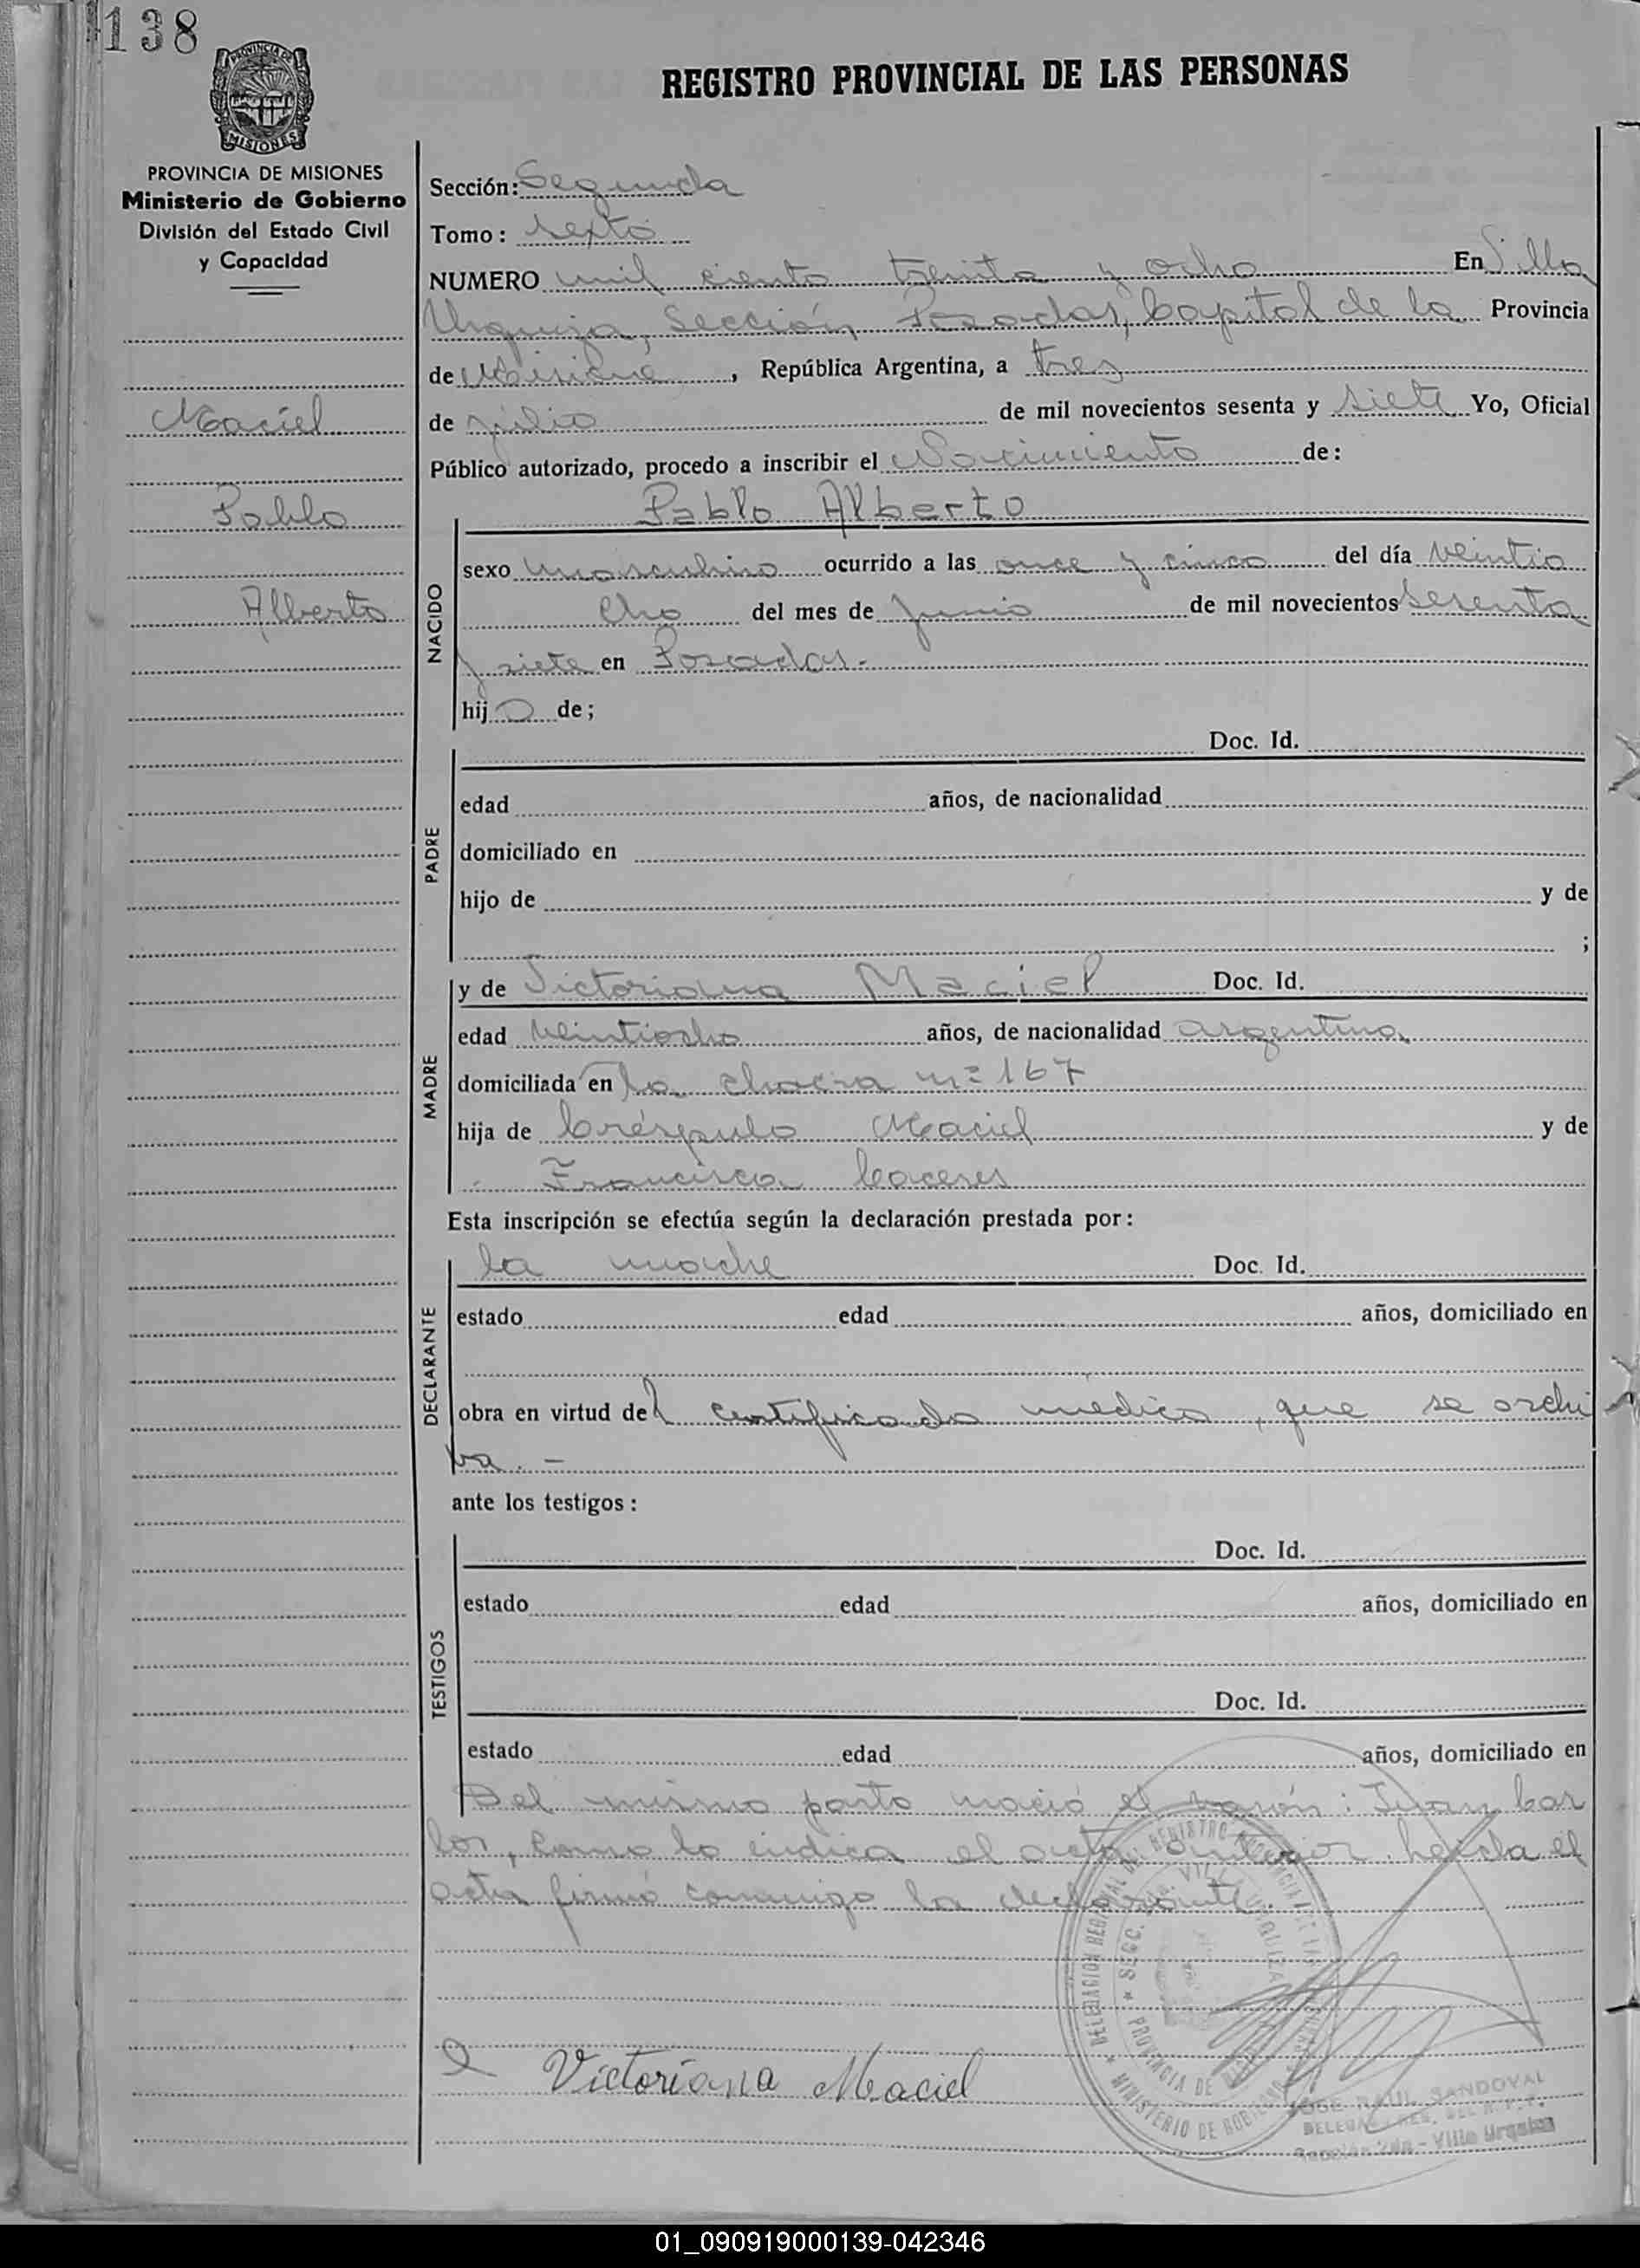 1138
PROVINCIA DE
MISIONES
REGISTRO PROVINCIAL DE LAS PERSONAS
PROVINCIA DE MISIONES
Ministerio de Gobierno
División del Estado Civil
y Capacidad
Maciel
Pablo
Alberto
Sección: Segunda
Tomo: sexto
NUMERO mil ciento treinta y ocho En Villa
Urquiza, Sección Posadas, Capital de la Provincia
de Misiones, República Argentina, a tres
de julio de mil novecientos sesenta y siete Yo, Oficial
Público autorizado, procedo a inscribir el Nacimiento de:
Pablo Alberto
NACIDO
sexo masculino ocurrido a las once y cinco del día veintio
cho del mes de junio de mil novecientos sesenta
y siete en Posadas.-
hijo de;
Doc. Id.
PADRE
edad años, de nacionalidad
domiciliado en
hijo de y de
;
MADRE
y de Victoriana Maciel Doc. Id.
edad veintiocho años, de nacionalidad argentina
domiciliada en la chacra nº 167
hija de Créspulo Maciel y de
Francisca Caceres
Esta inscripción se efectúa según la declaración prestada por:
DECLARANTE
la madre Doc. Id.
estado edad años, domiciliado en
obra en virtud del certificado médico, que se archi
va. -
ante los testigos:
TESTIGOS
Doc. Id.
estado edad años, domiciliado en
Doc. Id.
estado edad años, domiciliado en
Del mismo parto nació el varón: Juan Car
los, como lo indica el acta anterior. leída el
acta firmó conmigo la declarante.
Victoriana Maciel
JOSE RAUL SANDOVAL
Sección 2da - Villa Urquiza
01_090919000139-042346